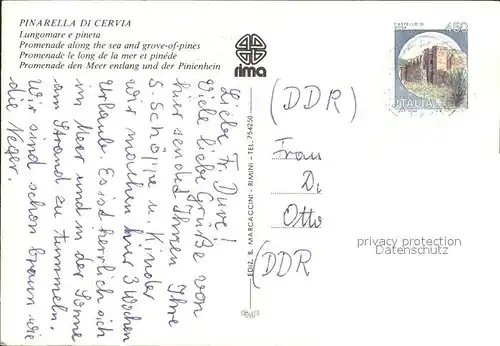 PINARELLA DI CERVIA
Lungomare e pineta
Promenade along the sea and grove-of-pines
Promenade le long de la mer et pinéde
Promenade den Meer entlang und der Pinienhein
rima
CASTELLO DI
450
ITALIA
EDIZ. B. MARCACCINI - RIMINI - TEL. 754250
Liebe Fr. Duve!
Viele liebe Grüße von
hier sendet Ihnen Ihre
S. u. Kinder
wir machen hier 3 Wochen
Urlaub. Es ist herrlich sich
im Meer und in der Sonne
am Strand zu tummeln.
Wir sind schon braun wie
die Neger.
(DDR)
Frau
Di
Otto
(DDR
privacy protection
Datenschutz